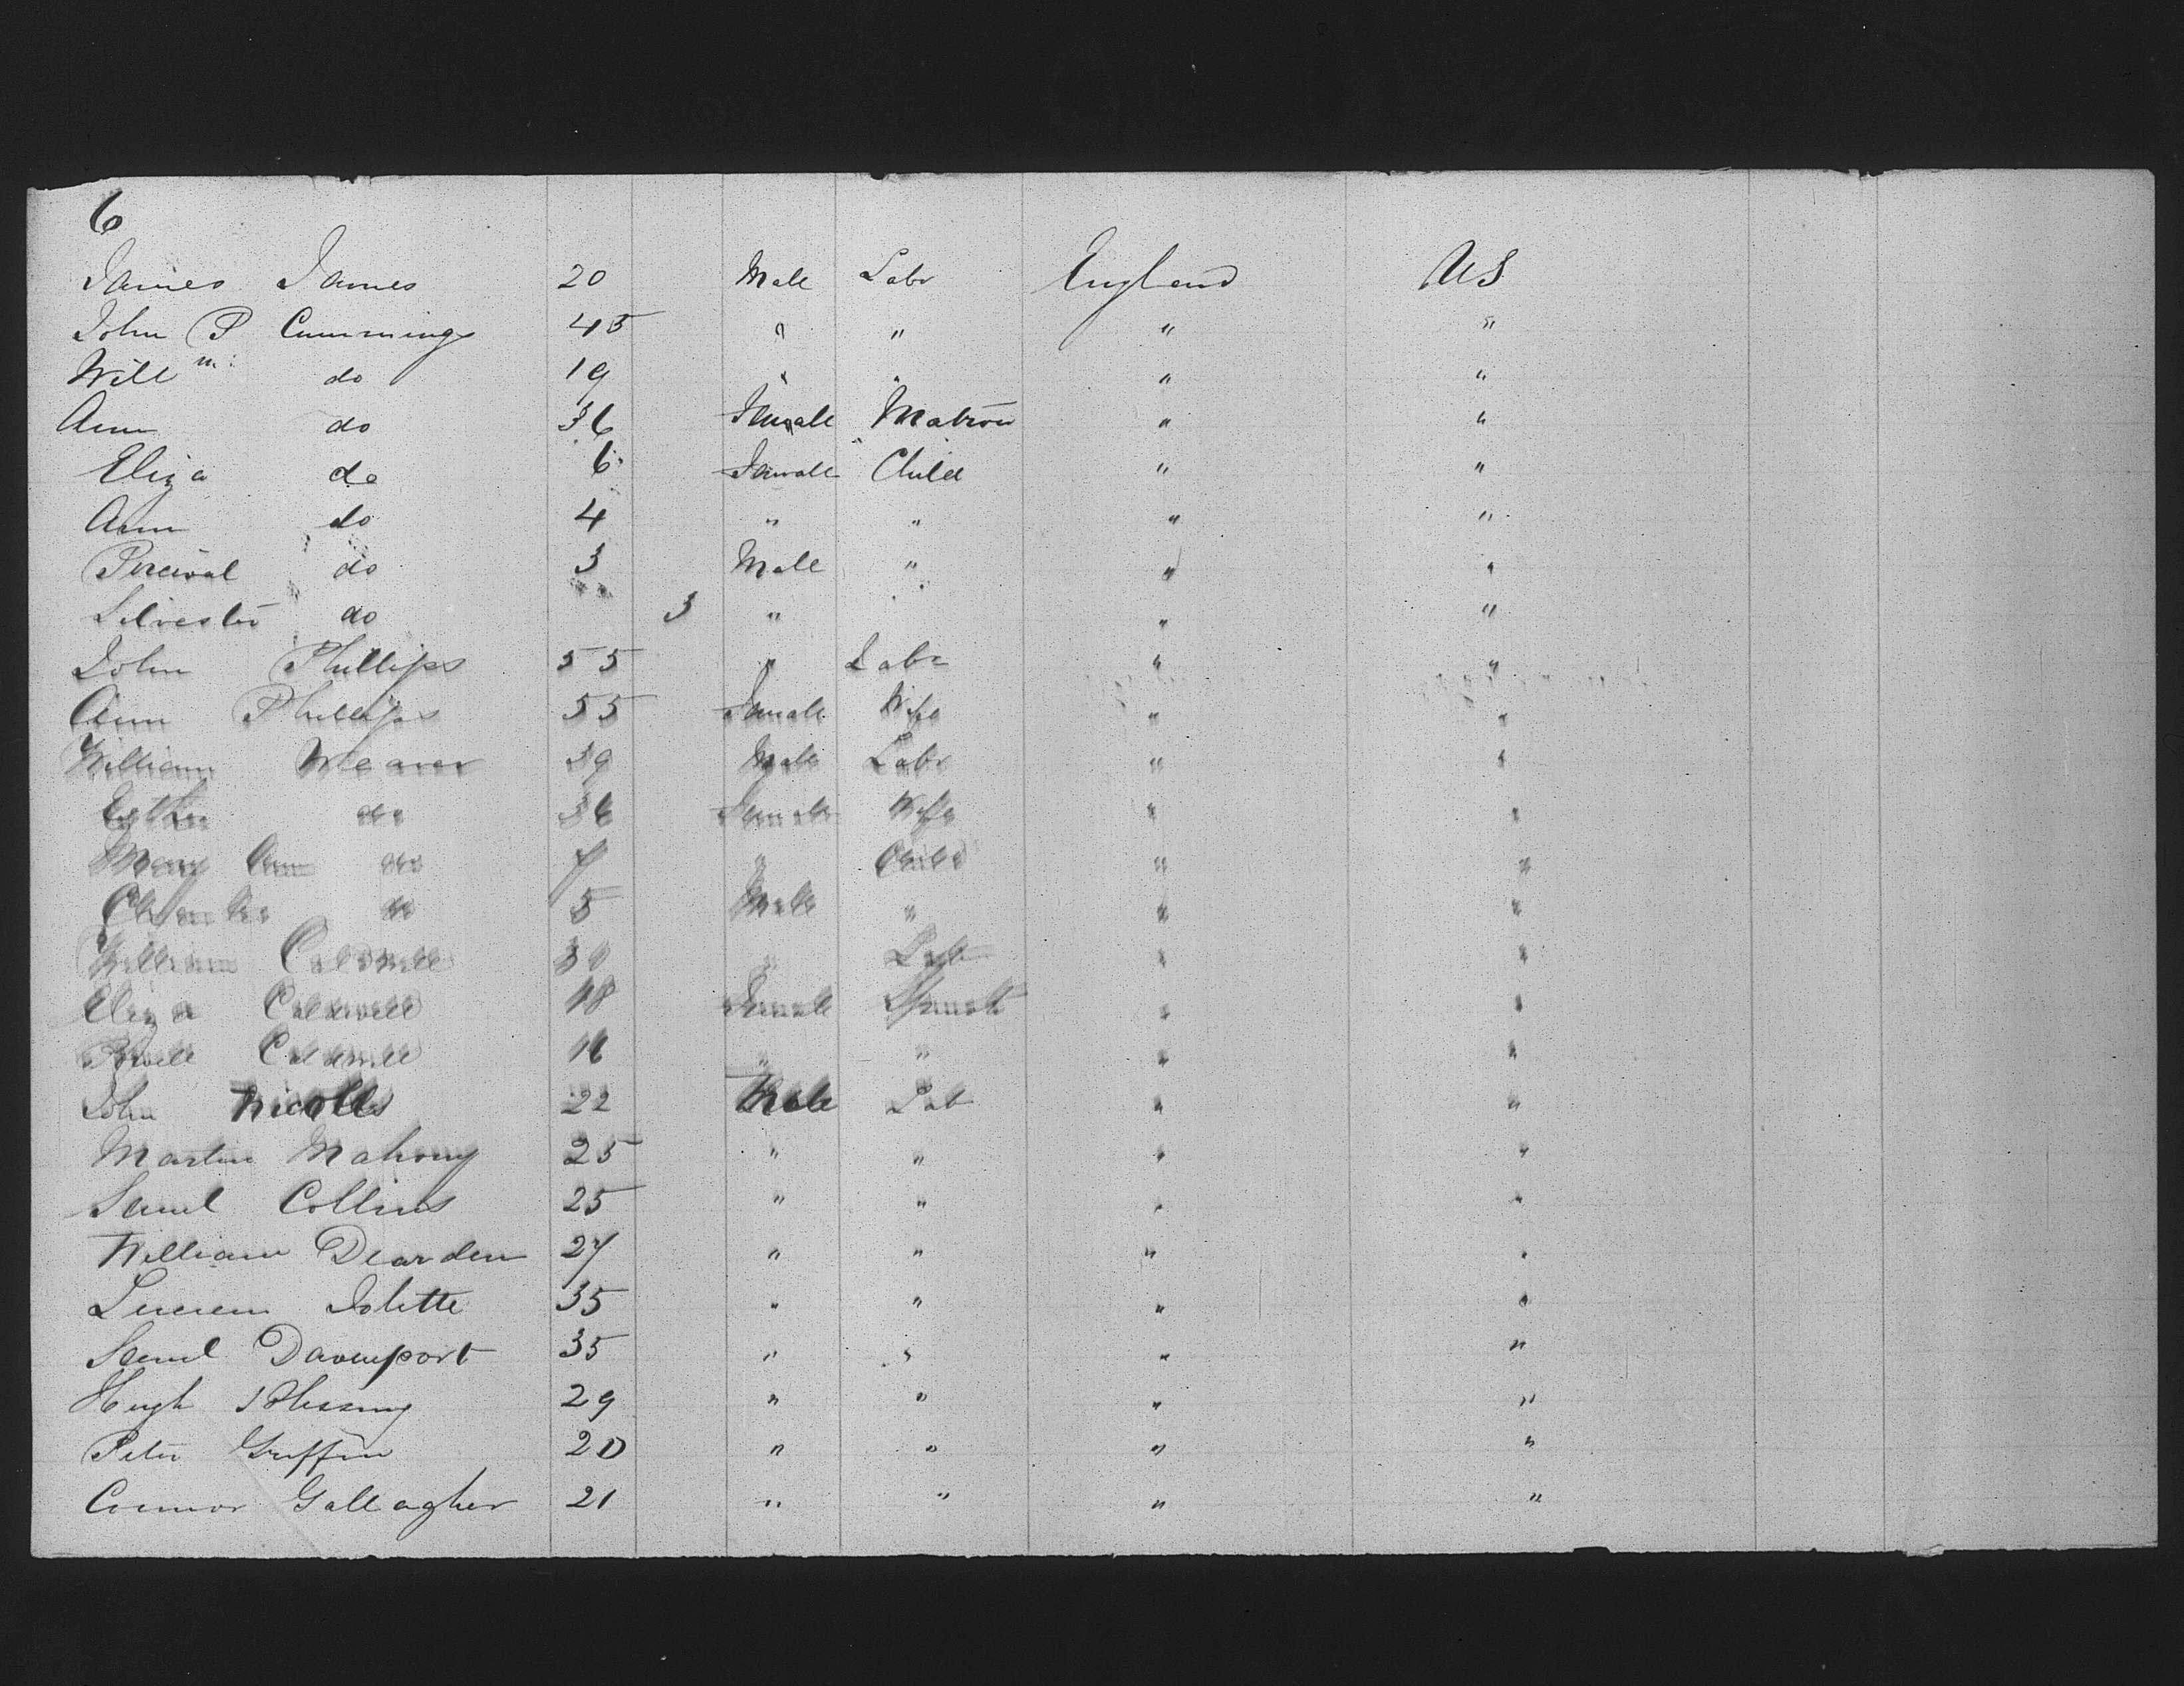 6
James James 20 Male Labr England US
John P Cummings 45 " " " "
Will m: do 19 " " " "
Ann do 36 Female Matron " "
Eliza do 6 Female Child " "
Ann do 4 " " " "
Percival do 3 Male " " "
Silvester do 3 " " "
John Phillips 55 " Labr " "
Ann Phillips 55 Female Wife " "
William Weaver 39 Male Labr " "
Esther do 36 Female Wife " "
Mary Ann do 7 " Child " "
Charles do 5 Male " " "
William Caldwell " Lab " "
Eliza Caldwell 18 Female " "
Caldwell 16 " " " "
John Nicolls 22 Male Lab " "
Martin Mahony 25 " " " "
Saml Collins 25 " " " "
William Dearden 27 " " " "
35 " " " "
Saml Davenport 35 " " " "
Hugh 29 " " " "
Peter Griffin 20 " " " "
Connor Gallagher 21 " " " "